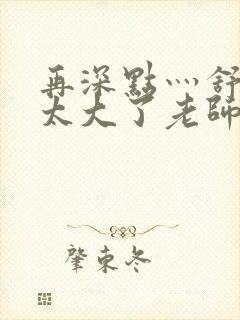 再深點灬舒
太大了老師
肇東冬